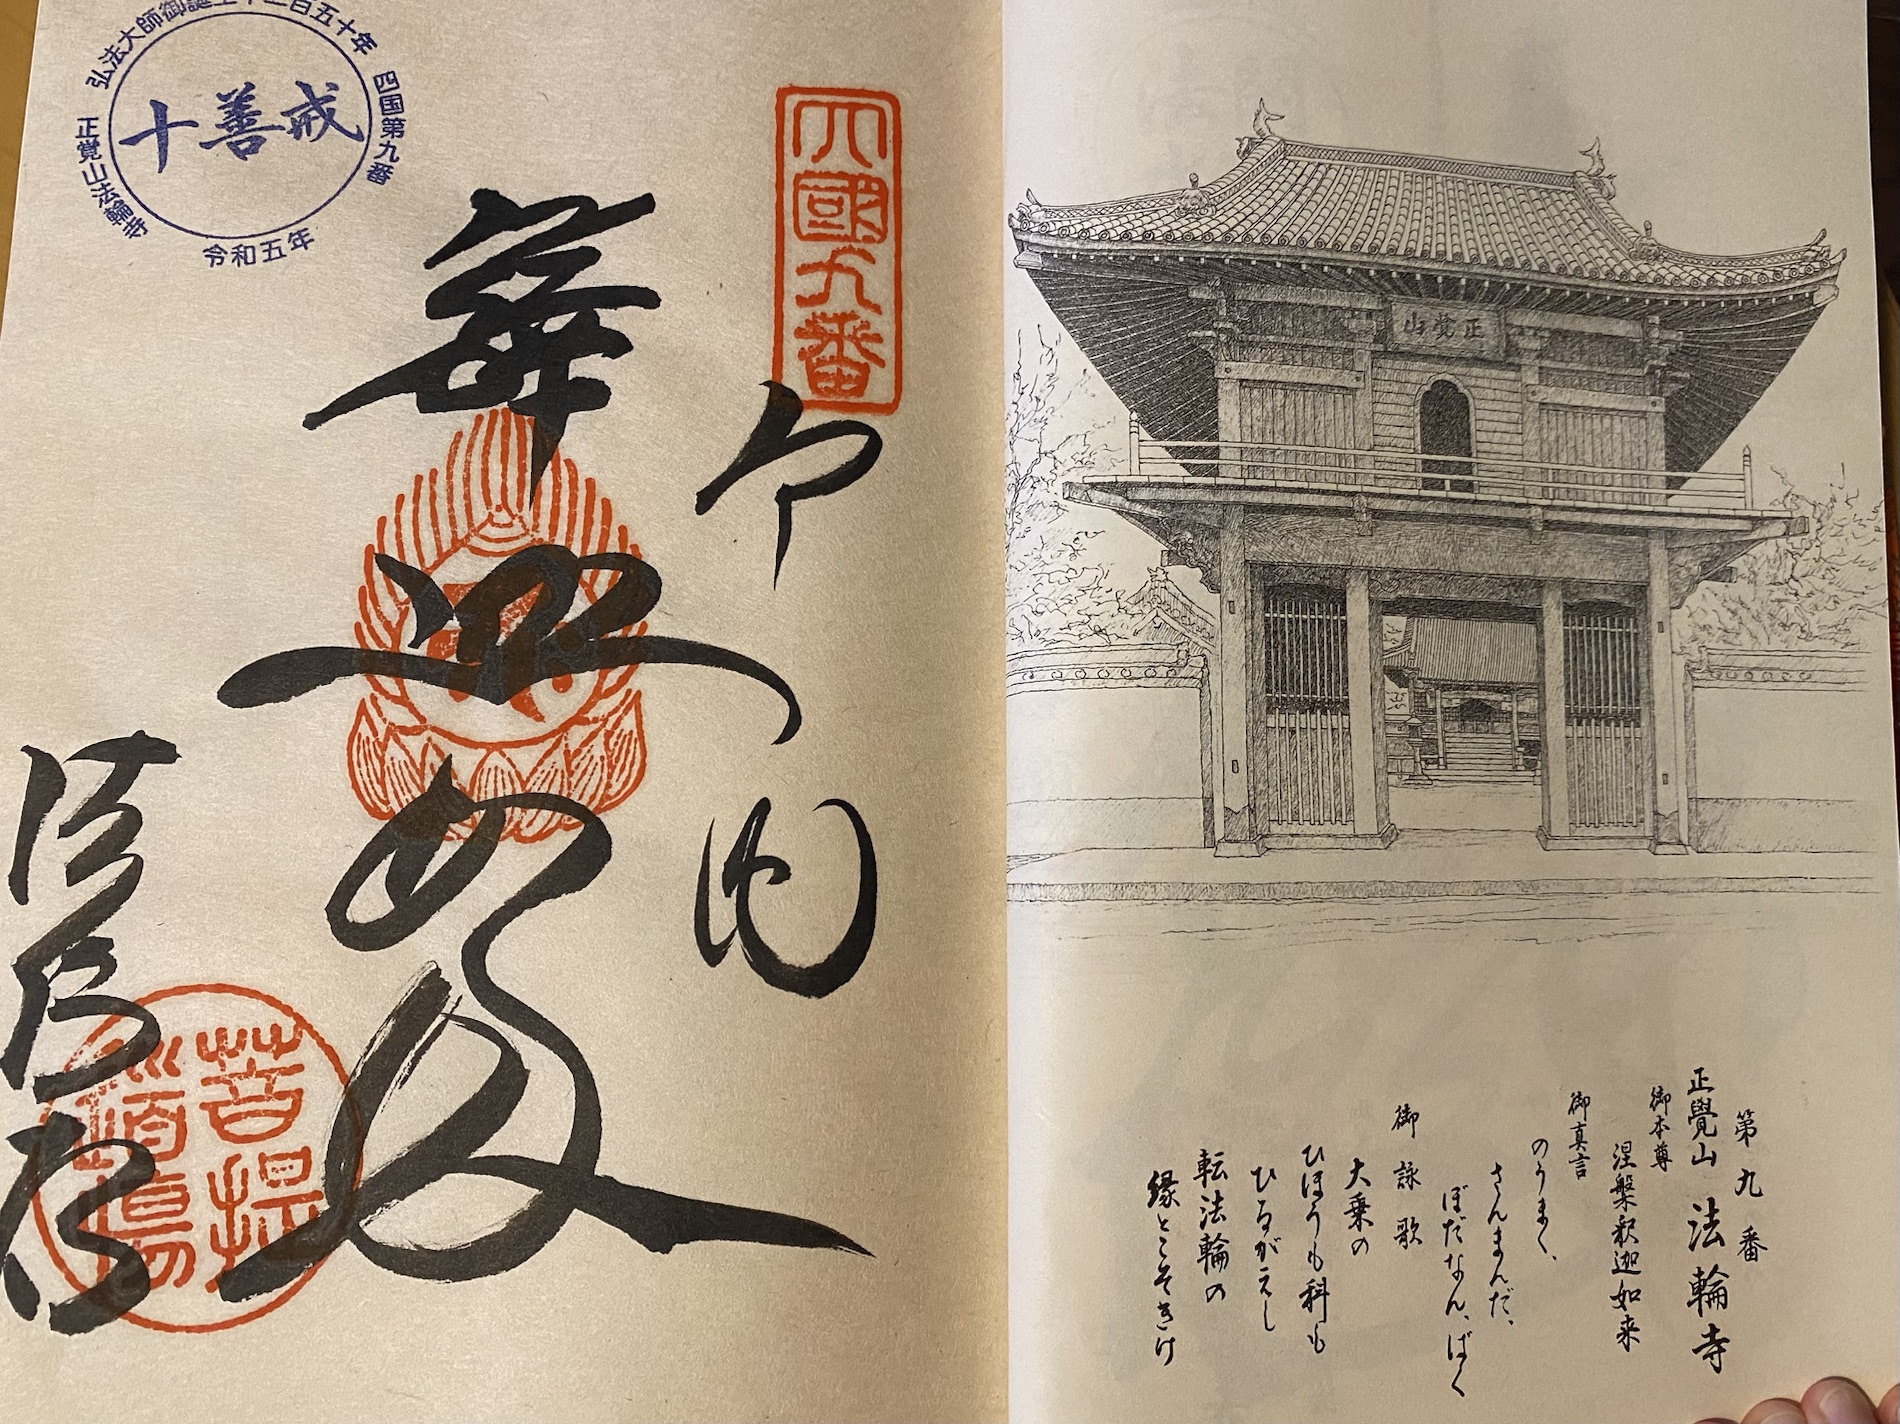 正覚山
第九番
正覺山 法輪寺
御本尊
涅槃釈迦如来
御真言
のうまく、
さんまんだ、
ぼだなん、ばく
御詠歌
大乗の
ひほうも科も
ひるがえし
転法輪の
縁とこそきけ
四國九番
奉納
迦如来
法輪寺
菩提
弘法大師御誕生千二百五十年
四国第九番
正覚山法輪寺
令和五年
十善戒